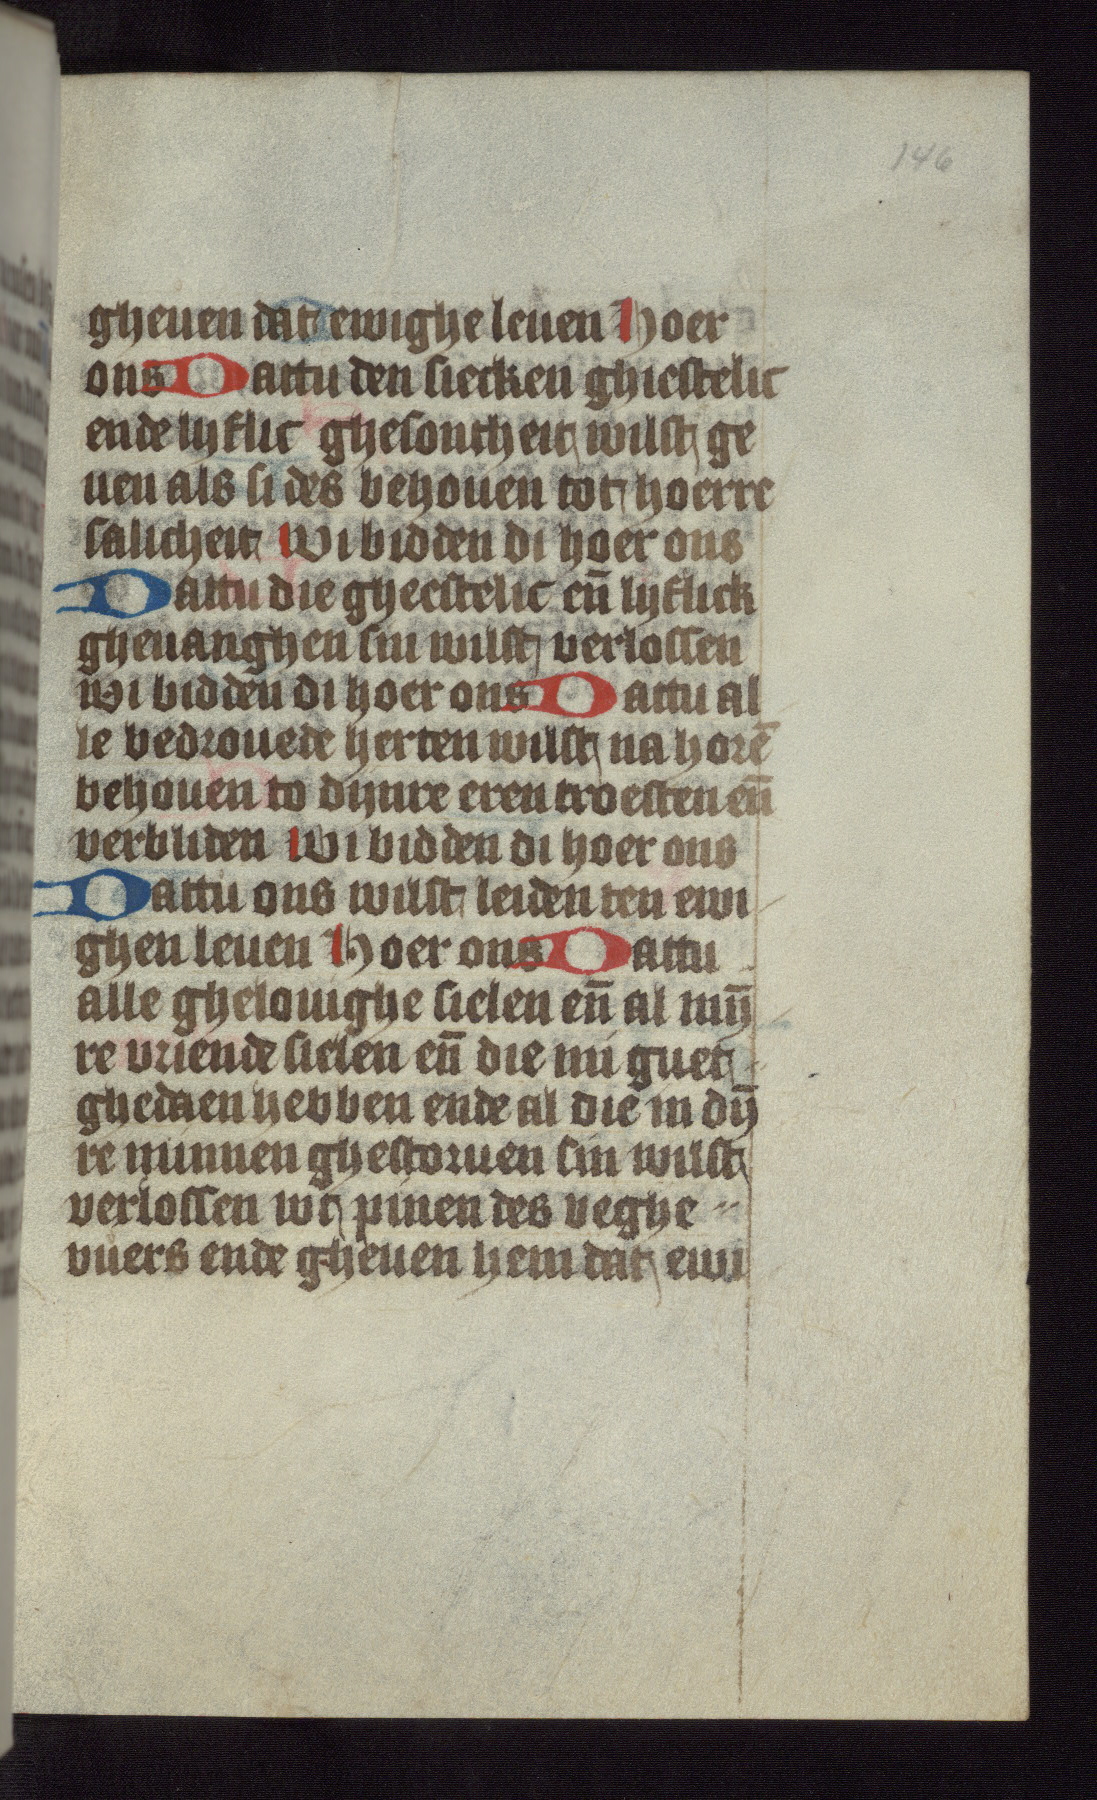 146
gheuen dat ewighe leuen Hoer
ons Dattu den siecken ghiestelic
ende lyflic ghesontheit wilst ge
uen als si des behouen tot hoerre
salicheit Wi bidden di hoer ons
Dattu die gheestelic eñ lyflick
gheuanghen sin wilst verlossen
wi bidden di hoer ons Dattu al
le bedrouede herten wilst na horē
behouen to dynre eren troesten eñ
verbliden Wi bidden di hoer ons
Dattu ons wilst leiden ten ewi
ghen leuen Hoer ons Dattu
alle ghelouighe sielen eñ al mȳ
re vriende sielen eñ die mi guet
ghedaen hebben ende al die in dȳ
re minnen ghestoruen sin wilst
verlossen wt pinen des veghe
vuers ende gheuen hem dat ewi